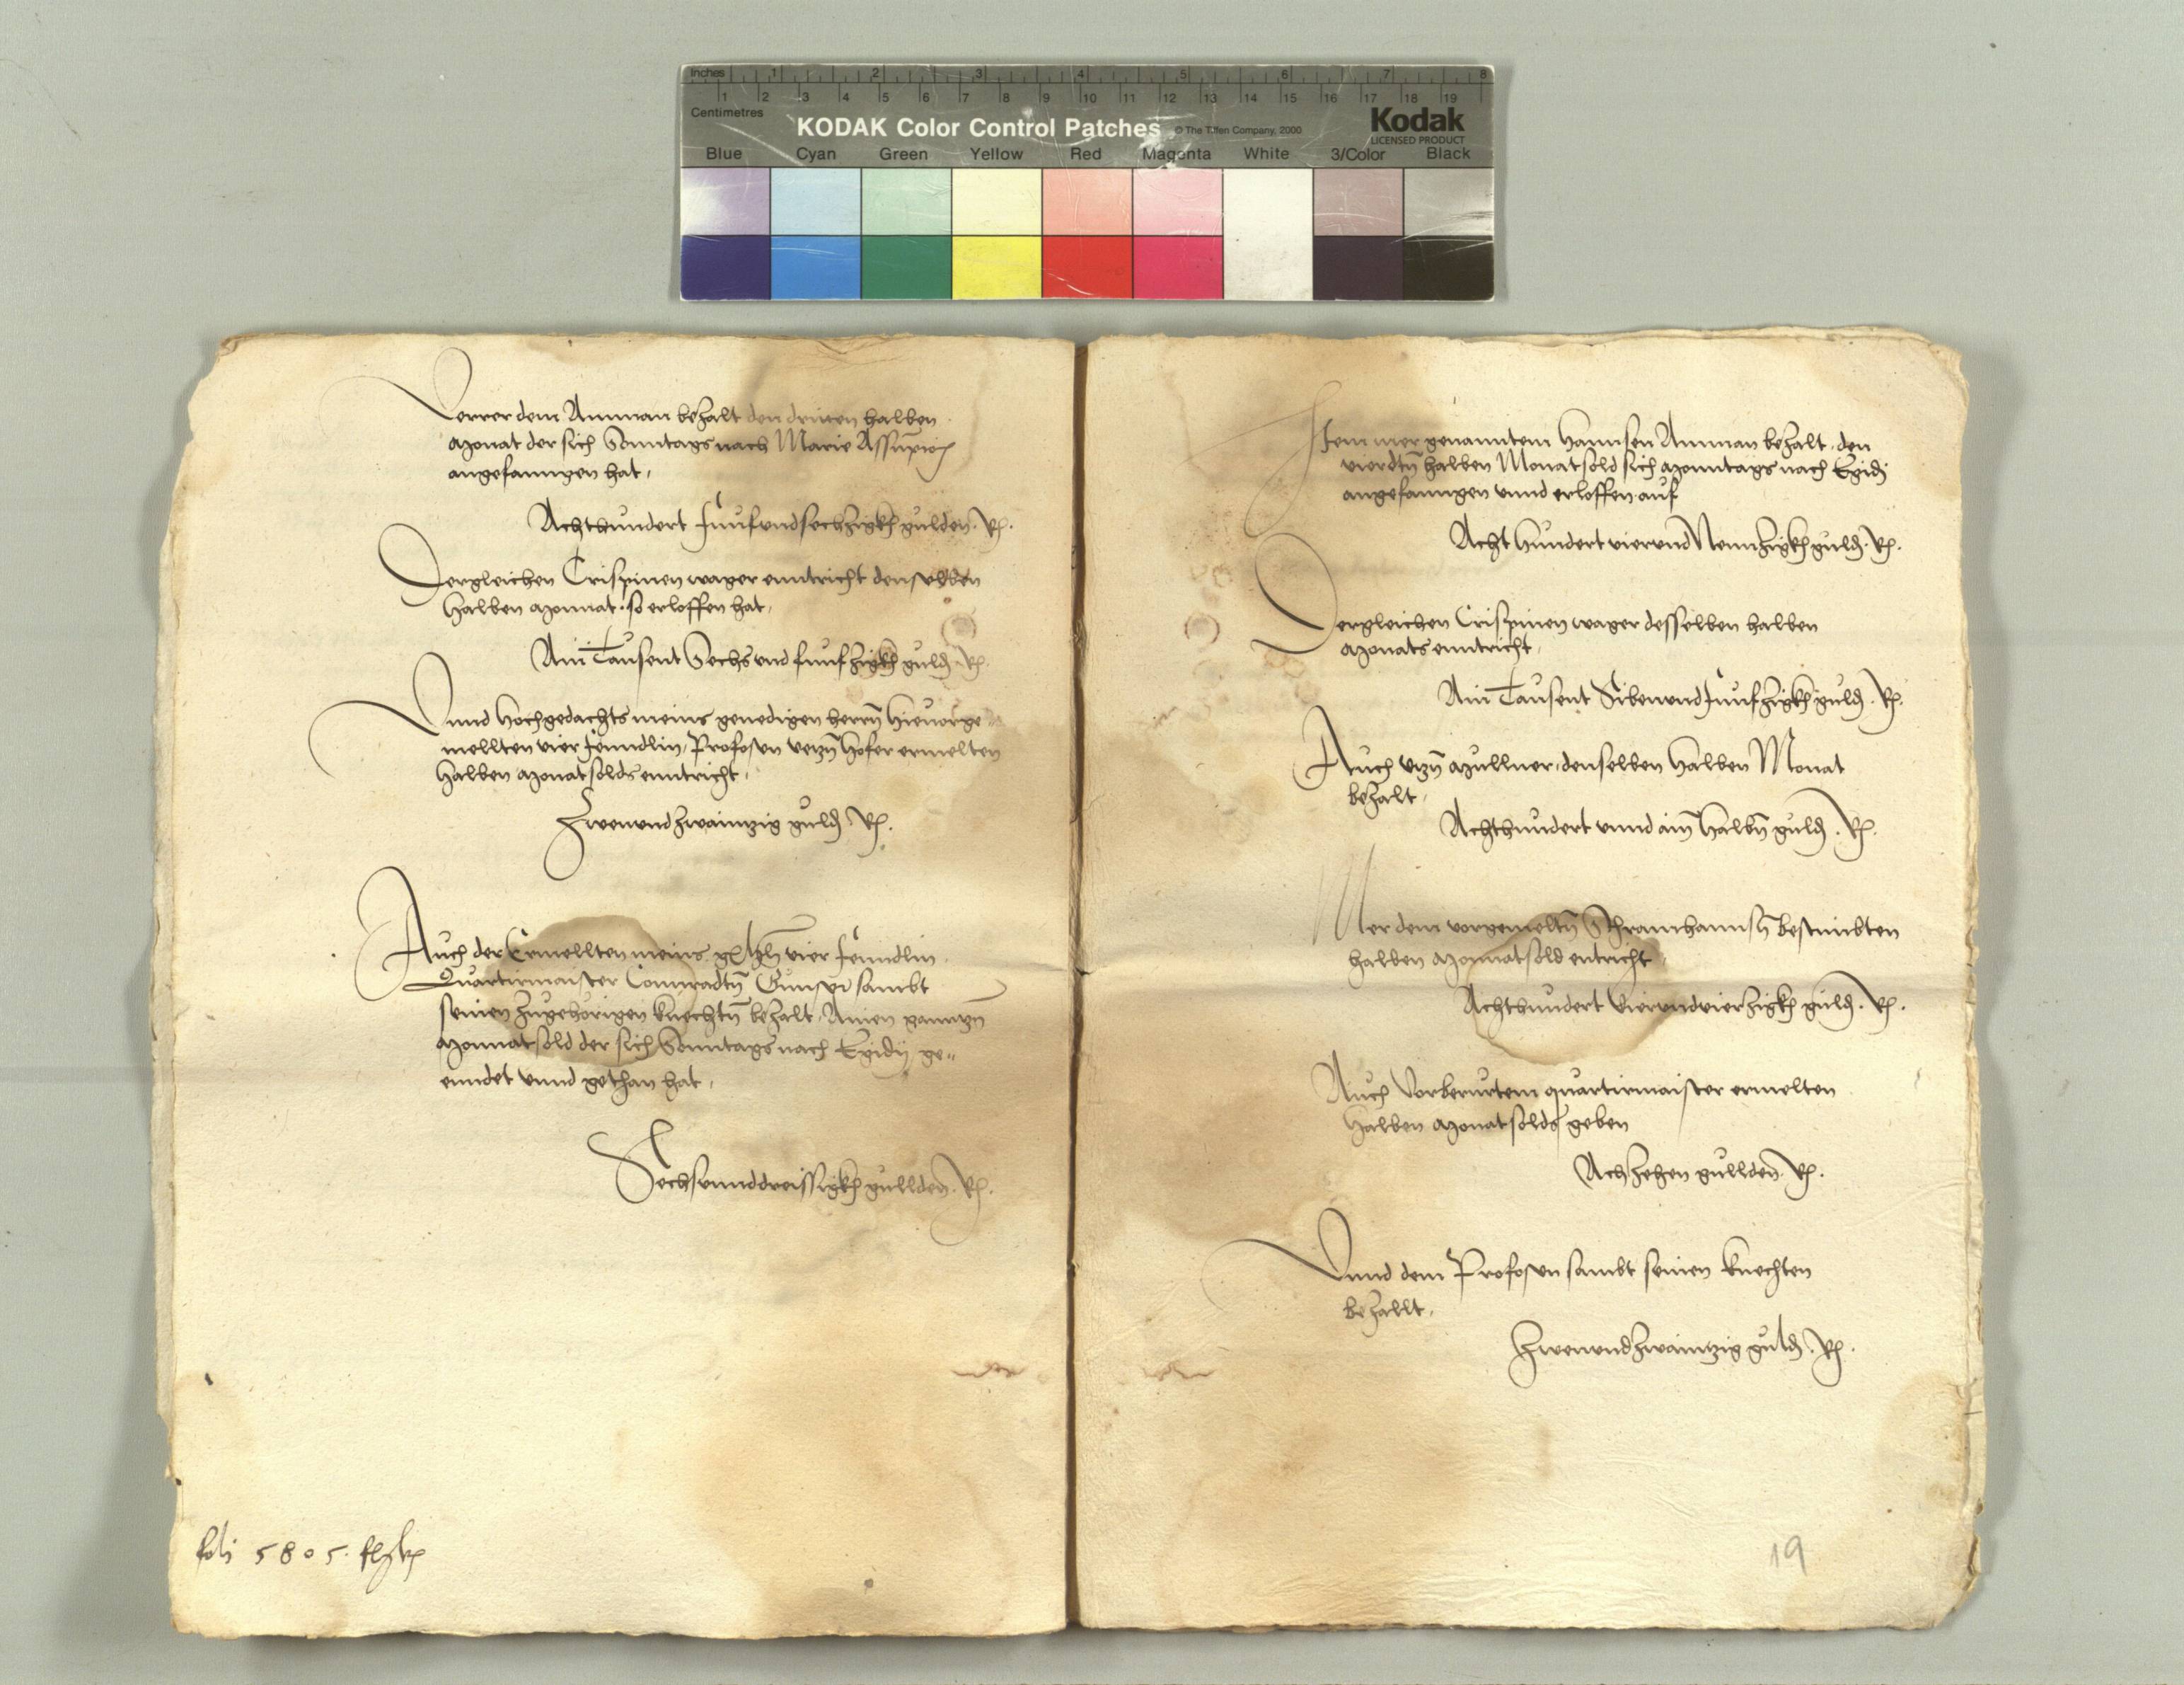 Inches 1 2 3 4 5 6 7 8
1 2 3 4 5 6 7 8 9 10 11 12 13 14 15 16 17 18 19
Centimetres
KODAK Color Control Patches © The Tiffen Company, 2000 Kodak
LICENSED PRODUCT
Blue Cyan Green Yellow Red Magenta White 3/Color Black
Verrer dem Amman bezalt den dritten halben
Monat der sich Sonntags nach Marie
angefanngen hat,
Achthundert Funfundsechzigkh gulden. R.
Dergleichen Crispinen wager enntricht denselben
halben Monnat. so erloffen hat,
Ain Tausent Sechs und funfzigkh guld. R.
Unnd hochgedachts meins genedigen herrn hieuorge
mellten vier fenndlin, Profosen hofer ermelten
halben Monat solds enntricht,
Zwenundzwaintzig guld. R.
Auch der Ermellten meins vier fenndlin
Quartirmaister Connradtn sambt
seinen zugehorigen knechtn bezalt, Ainen ganntzn
Monnat sold der sich Sonntags nach Egidij ge
enndet unnd gethan hat,
Sechsunnddreissigkh gullden. R.
5805.
Item mer genanntem Hannsen Amman bezalt, den
vierdtn halben Monat sold sich Monntags nach Egidj
angefanngen unnd erloffen auf
Acht Hundert vierundNeunzigkh guld. R.
Dergleichen Crispinen wager desselben halben
Monats enntricht,
Ain Tausent Sibenundfunfzigkh guld. R.
Auch utzn Mullner, denselben halben Monat
bezalt,
Achthundert unnd ain halbn guld. R.
Mer dem vorgemeltn bestimbten
halben Monnat sold entricht
Achthundert Vierundvierzigkh guld. R.
Auch Vorberurtem quartirmaister ermelten
halben Monat solds geben
Achzehen gullden. R.
Unnd dem Profosen sambt seinen knechten
bezallt,
Zwenundzwaintzig guld. R.
19